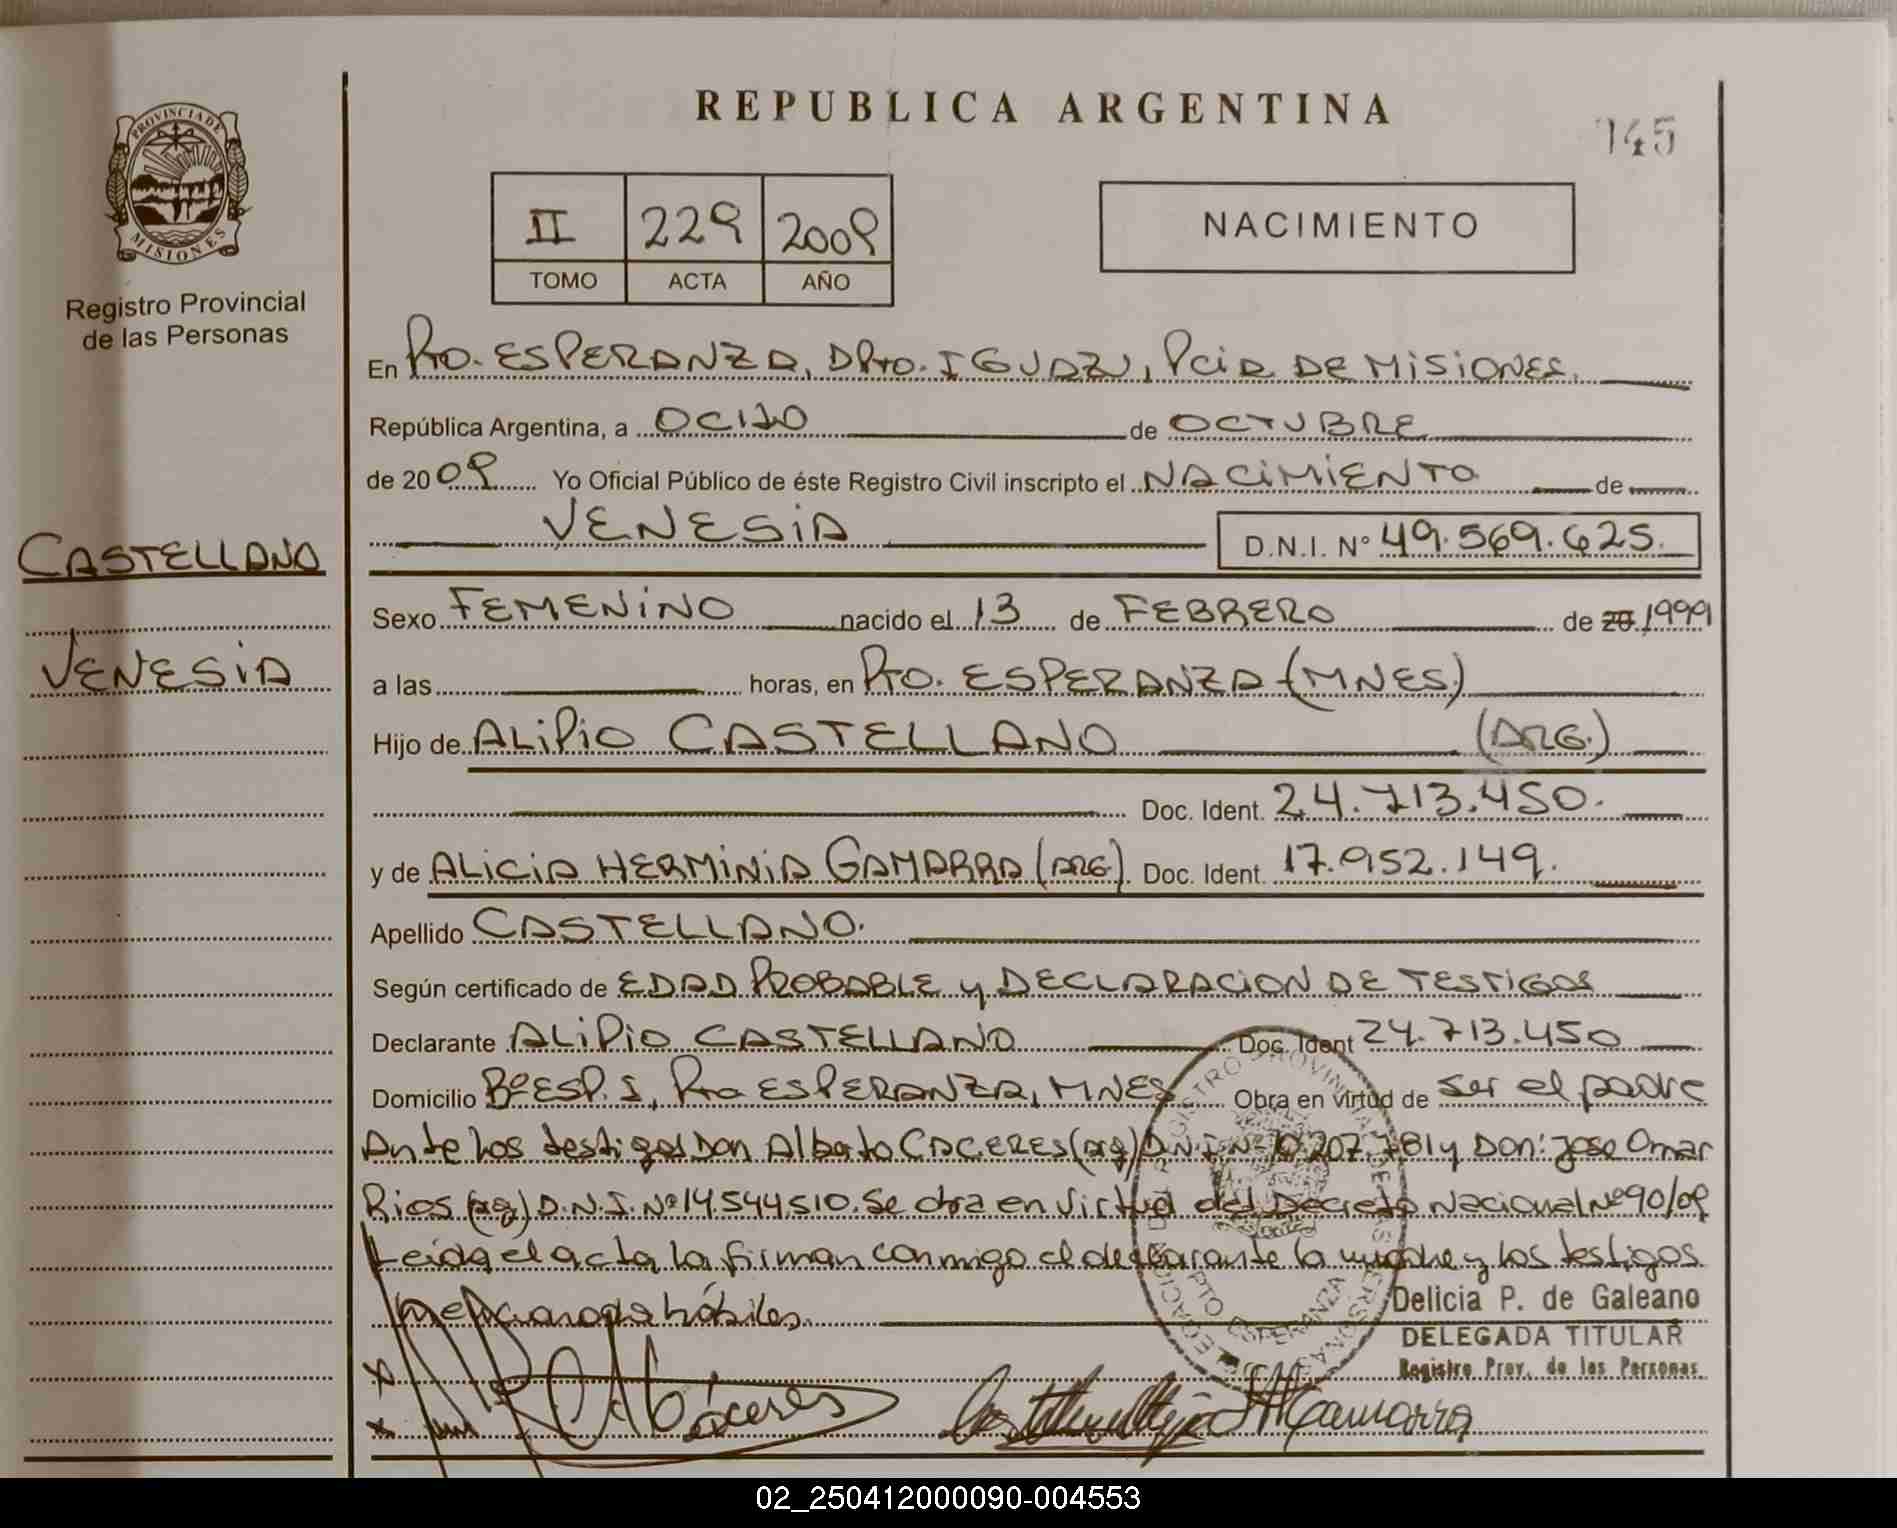 REPUBLICA ARGENTINA
145
PROVINCIA DE
MISIONES
Registro Provincial
de las Personas
II 229 2009
TOMO ACTA AÑO
NACIMIENTO
En Pto. ESPERANZA, DPto. IGUAZU, Pcia DE MISIONES.
República Argentina, a OCHO de OCTUBRE
de 2009 Yo Oficial Público de éste Registro Civil inscripto el NACIMIENTO de
VENESIA D.N.I. Nº 49.569.625.
CASTELLANO
VENESIA
Sexo FEMENINO nacido el 13 de FEBRERO de 20 1999
a las horas, en Pto. ESPERANZA (MNES.)
Hijo de ALIPIO CASTELLANO (ARG.)
Doc. Ident. 24.713.450.
y de ALICIA HERMINIA GAMARRA (ARG.) Doc. Ident. 17.952.149.
Apellido CASTELLANO.
Según certificado de EDAD PROBABLE y DECLARACION DE TESTIGOS
Declarante ALIPIO CASTELLANO Doc. Ident 24.713.450
Domicilio Bº ESP. I, Pto ESPERANZA, MNES Obra en virtud de ser el padre
Ante los testigos Don Alberto CACERES (arg) D.N.I. Nº 10.207.781 y Don: Jose Omar
Rios (arg) D.N.I. Nº 14.544.510. Se obra en virtud del Decreto Nacional Nº 90/09
Leída el acta la firman conmigo el declarante la madre y los testigos
mencionados hábiles.
Delicia P. de Galeano
DELEGADA TITULAR
Registro Prov. de las Personas
PTO ESPERANZA
x
x Cáceres Gamarra
02_250412000090-004553